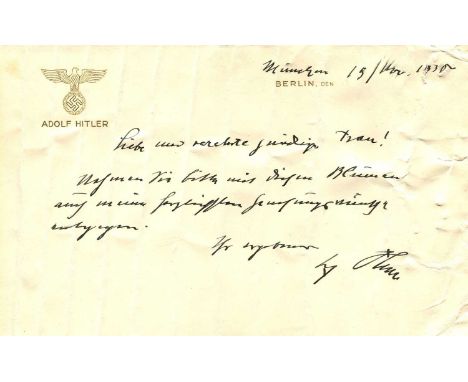 München 15/Nov. 1935
BERLIN, DEN
ADOLF HITLER
Liebe und verehrte gnädige Frau!
Nehmen Sie bitte mit diesen Blumen
auch meine herzlichsten Genesungswünsche
entgegen.
Ihr ergebener